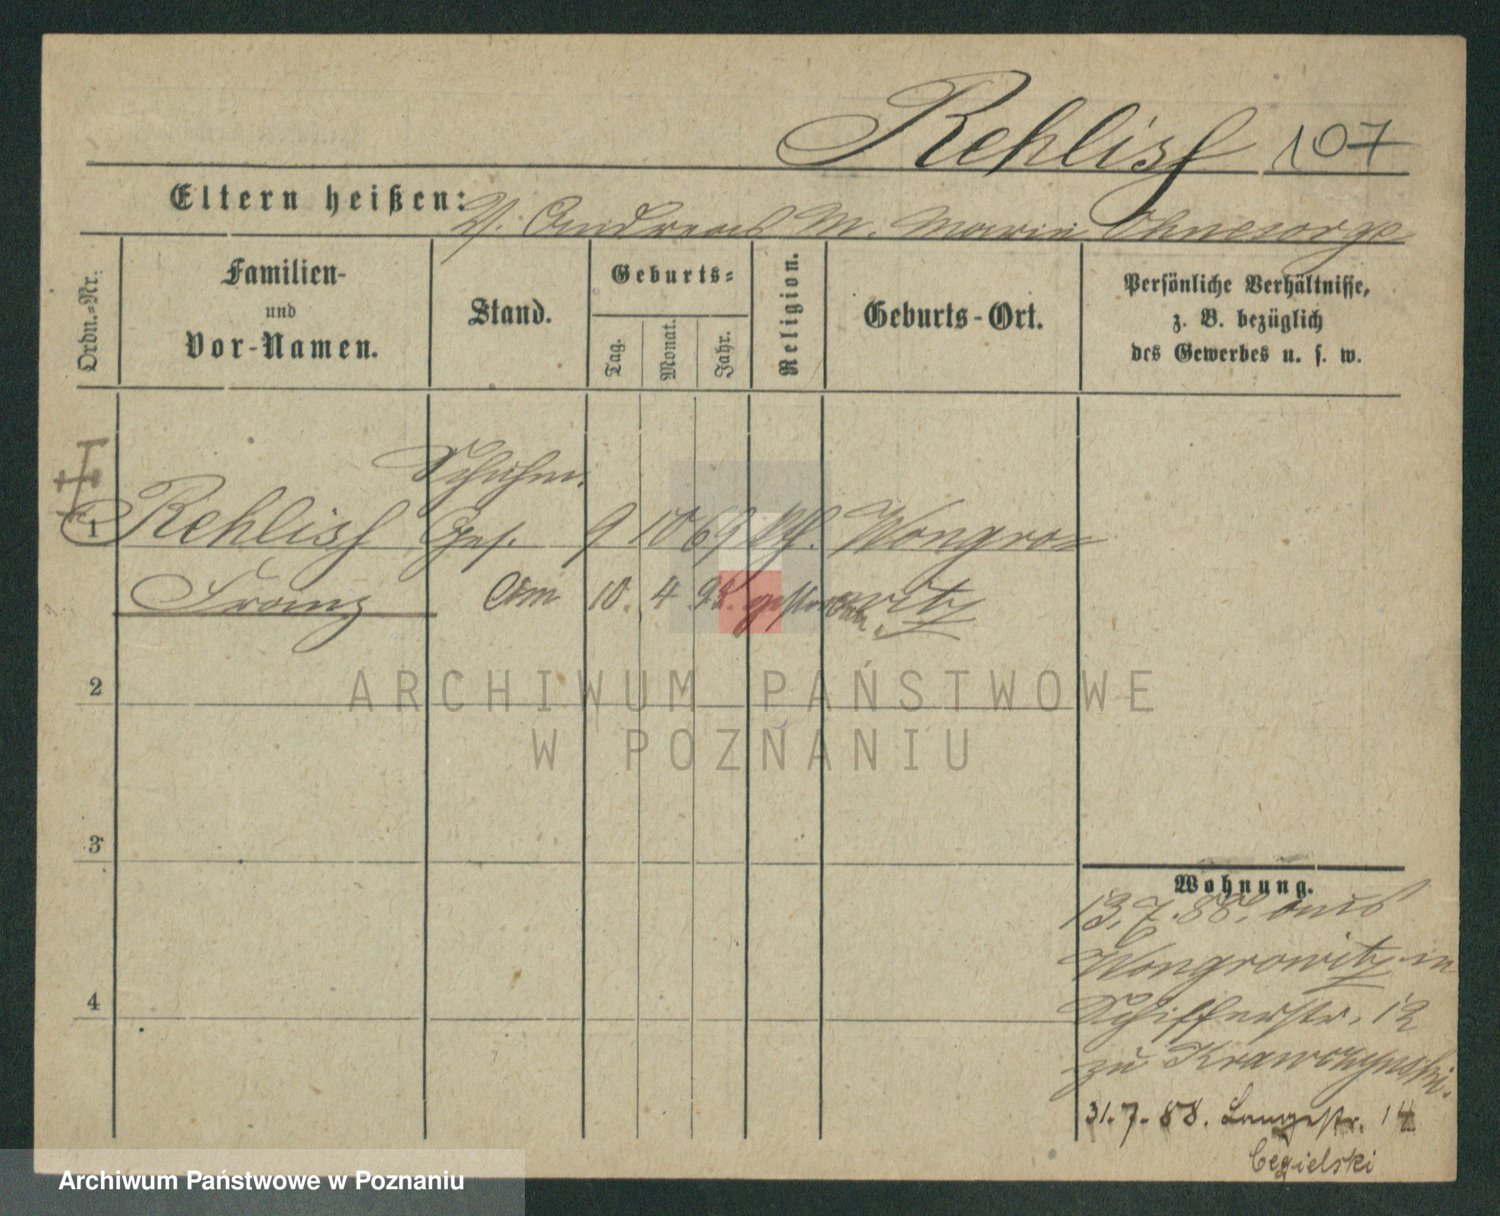 Rehlisch 107
Eltern heißen: V. Andreas M. Marie Ohnesorge
Ordn.-Nr.
Familien-
und
Vor-Namen.
Stand.
Geburts-
Tag.
Monat.
Jahr.
Religion.
Geburts-Ort.
Persönliche Verhältnisse,
z. B. bezüglich
des Gewerbes u. s. w.
Schuhm.
1 Rehlisch Ges. 9 10 69 Kth. Wongro-
Franz Am 10. 4. 92. gestorben witz
2
3
4
Wohnung.
13.7.88. aus
Wongrowitz in
Schifferstr. 12
zu Krawczynski.
31.7.88. Langestr. 14
Cegielski
ARCHIWUM PAŃSTWOWE
W POZNANIU
Archiwum Państwowe w Poznaniu